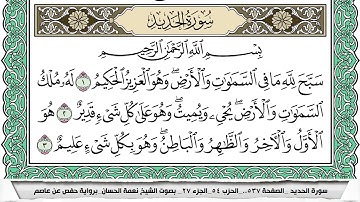 سُورَةُ الحَدِيدِ
بِسْمِ اللَّهِ الرَّحْمَٰنِ الرَّحِيمِ
سَبَّحَ لِلَّهِ مَا فِي السَّمَٰوَٰتِ وَالْأَرْضِ ۖ وَهُوَ الْعَزِيزُ الْحَكِيمُ ١ لَهُ مُلْكُ
السَّمَٰوَٰتِ وَالْأَرْضِ ۖ يُحْيِ وَيُمِيتُ ۖ وَهُوَ عَلَىٰ كُلِّ شَيْءٍ قَدِيرٌ ٢ هُوَ
الْأَوَّلُ وَالْآخِرُ وَالظَّٰهِرُ وَالْبَاطِنُ ۖ وَهُوَ بِكُلِّ شَيْءٍ عَلِيمٌ ٣
سورة الحديد ... الصفحة ٥٣٧ ... الحزب ٥٤ ... الجزء ٢٧ ... بصوت الشيخ نعمة الحسان برواية حفص عن عاصم